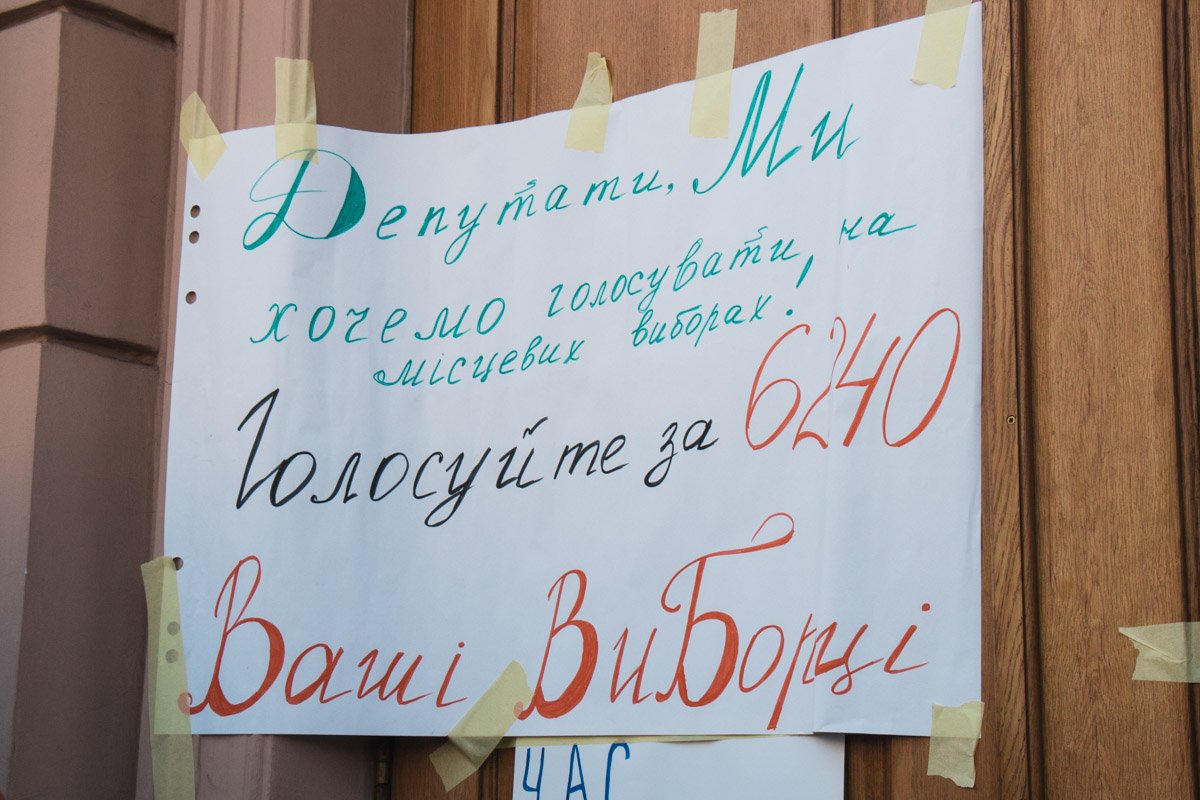 Депутати, Ми
хочемо голосувати, на
місцевих виборах!
Голосуйте за 6240
Ваші ВиБорці
ЧАС